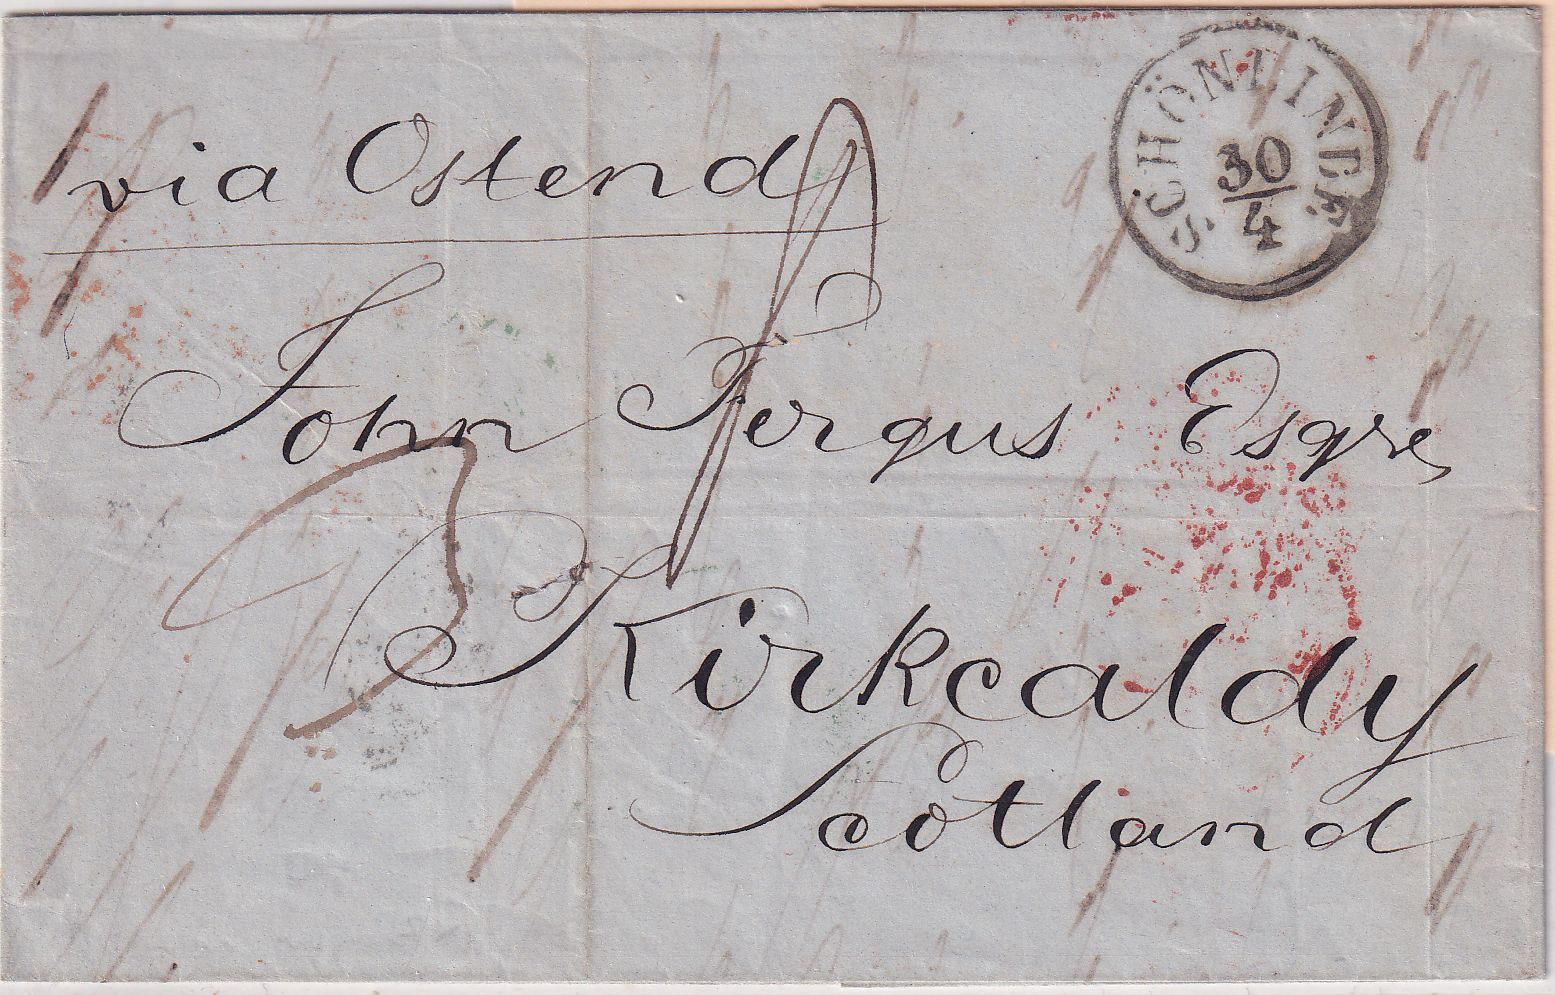 via Ostend
SCHÖNLINDE
30
4
John Fergus Esqre,
Kirkcaldy
Scotland